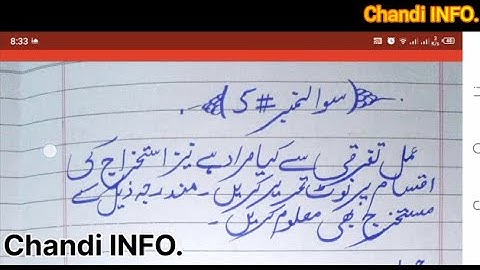 Chandi INFO.
8:33
سوالنمبر #5
عمل تفرقی سے کیا مراد ہے نیز استخراج کی
اقسام پر نوٹ تحریر کریں۔ مندرجہ ذیل سے
مستخرج بھی معلوم کریں۔
Chandi INFO.